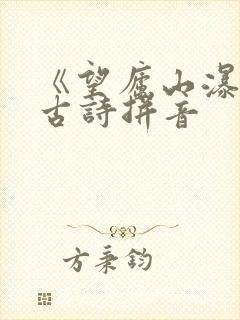 《望庐山瀑
古詩拼音
方秉鈞